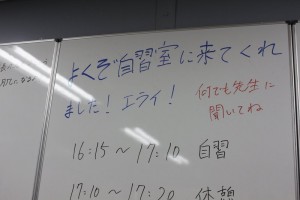 よくぞ自習室に来てくれ
ました！エライ！
何でも先生に
聞いてね
16:15～17:10 自習
17:10～17:20 休憩